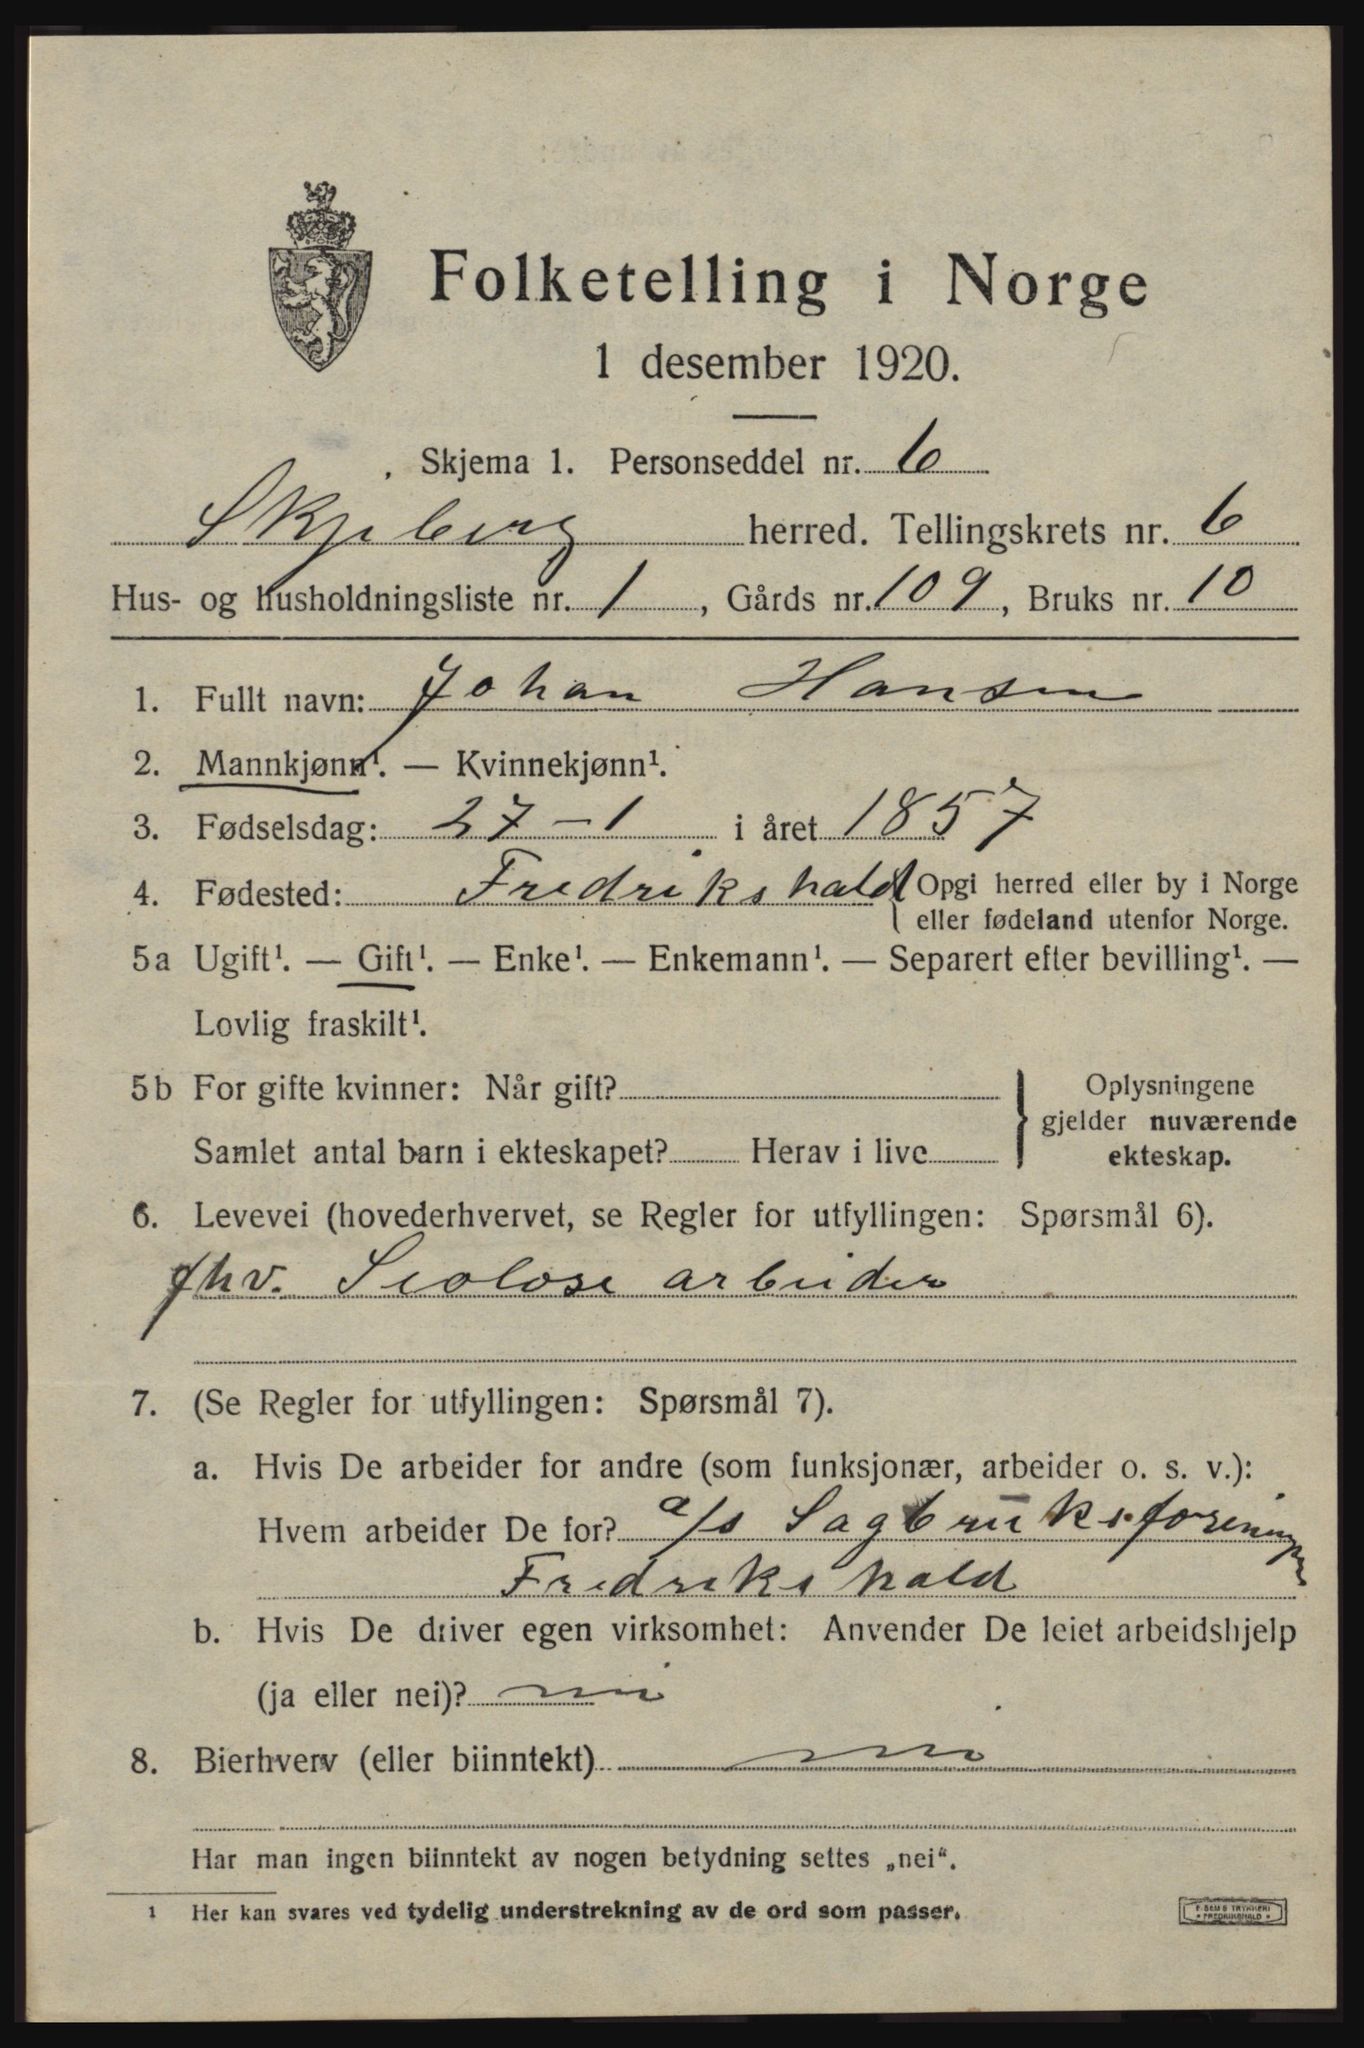 Folketelling i Norge
1 desember 1920.
Skjema 1. Personseddel nr. 6
Skjeberg herred. Tellingskrets nr. 6
Hus- og husholdningsliste nr. 1, Gårds nr. 109, Bruks nr. 10
1. Fullt navn: Johan Hansen
2. Mannkjønn¹. — Kvinnekjønn¹.
3. Fødselsdag: 27 - 1 i året 1857
4. Fødested: Fredrikshald { Opgi herred eller by i Norge
eller fødeland utenfor Norge.
5a Ugift¹. — Gift¹. — Enke¹. — Enkemann¹. — Separert efter bevilling¹. —
Lovlig fraskilt¹.
5b For gifte kvinner: Når gift?
Samlet antal barn i ekteskapet? Herav i live
} Oplysningene
gjelder nuværende
ekteskap.
6. Levevei (hovederhvervet, se Regler for utfyllingen: Spørsmål 6).
fhv. arbeider
7. (Se Regler for utfyllingen: Spørsmål 7).
a. Hvis De arbeider for andre (som funksjonær, arbeider o. s. v.):
Hvem arbeider De for? a/s Sagbruksforeningen
Fredrikshald
b. Hvis De driver egen virksomhet: Anvender De leiet arbeidshjelp
(ja eller nei)? nei
8. Bierhverv (eller biinntekt) nei
Har man ingen biinntekt av nogen betydning settes „nei“.
1 Her kan svares ved tydelig understrekning av de ord som passer.
E. SEMS TRYKKERI
• FREDRIKSHALD •